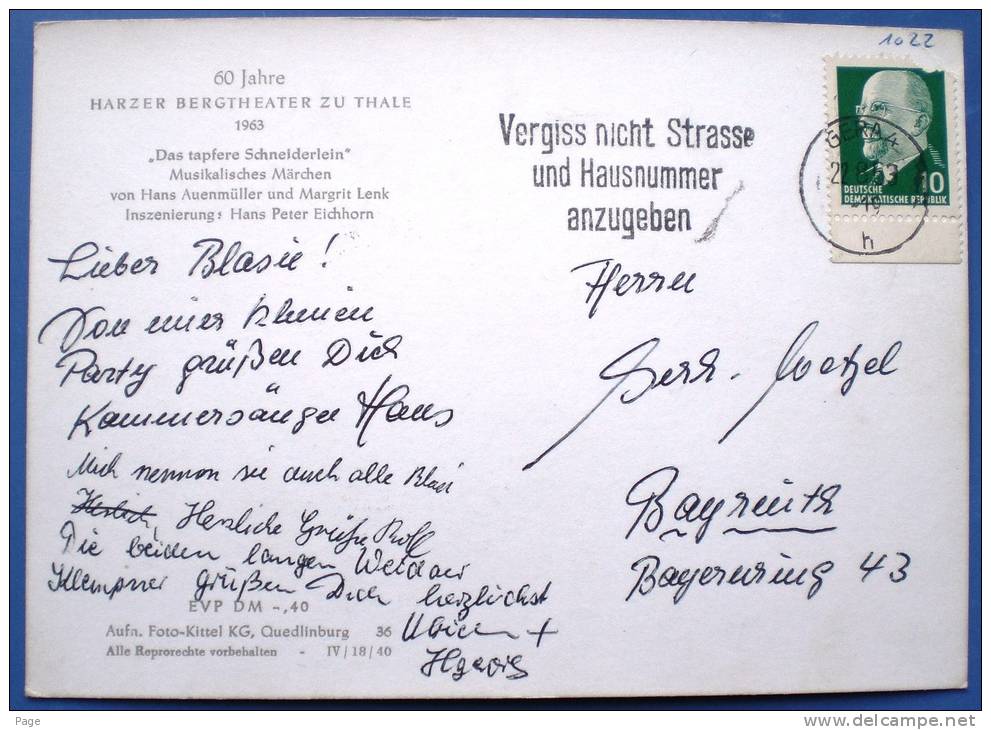 1022
60 Jahre
HARZER BERGTHEATER ZU THALE
1963
„Das tapfere Schneiderlein"
Musikalisches Märchen
von Hans Auenmüller und Margrit Lenk
Inszenierung: Hans Peter Eichhorn
Vergiss nicht Strasse
und Hausnummer
anzugeben
GERA 4
h
10
DEUTSCHE
DEMOKRATISCHE REPUBLIK
Lieber Blasie!
Von einer kleinen
Party grüßen Dich
Kammersänger Hans
Mich nennen sie auch alle Blasi
Herzliche Grüße Rolf
Die beiden langen
Klempner grüßen Dich herzlichst
+
Herrn
Wetzel
Bayreuth
Bayernring 43
EVP DM -,40
Aufn. Foto-Kittel KG, Quedlinburg 36
Alle Reprorechte vorbehalten - IV/18/40
Page
www.delcampe.net